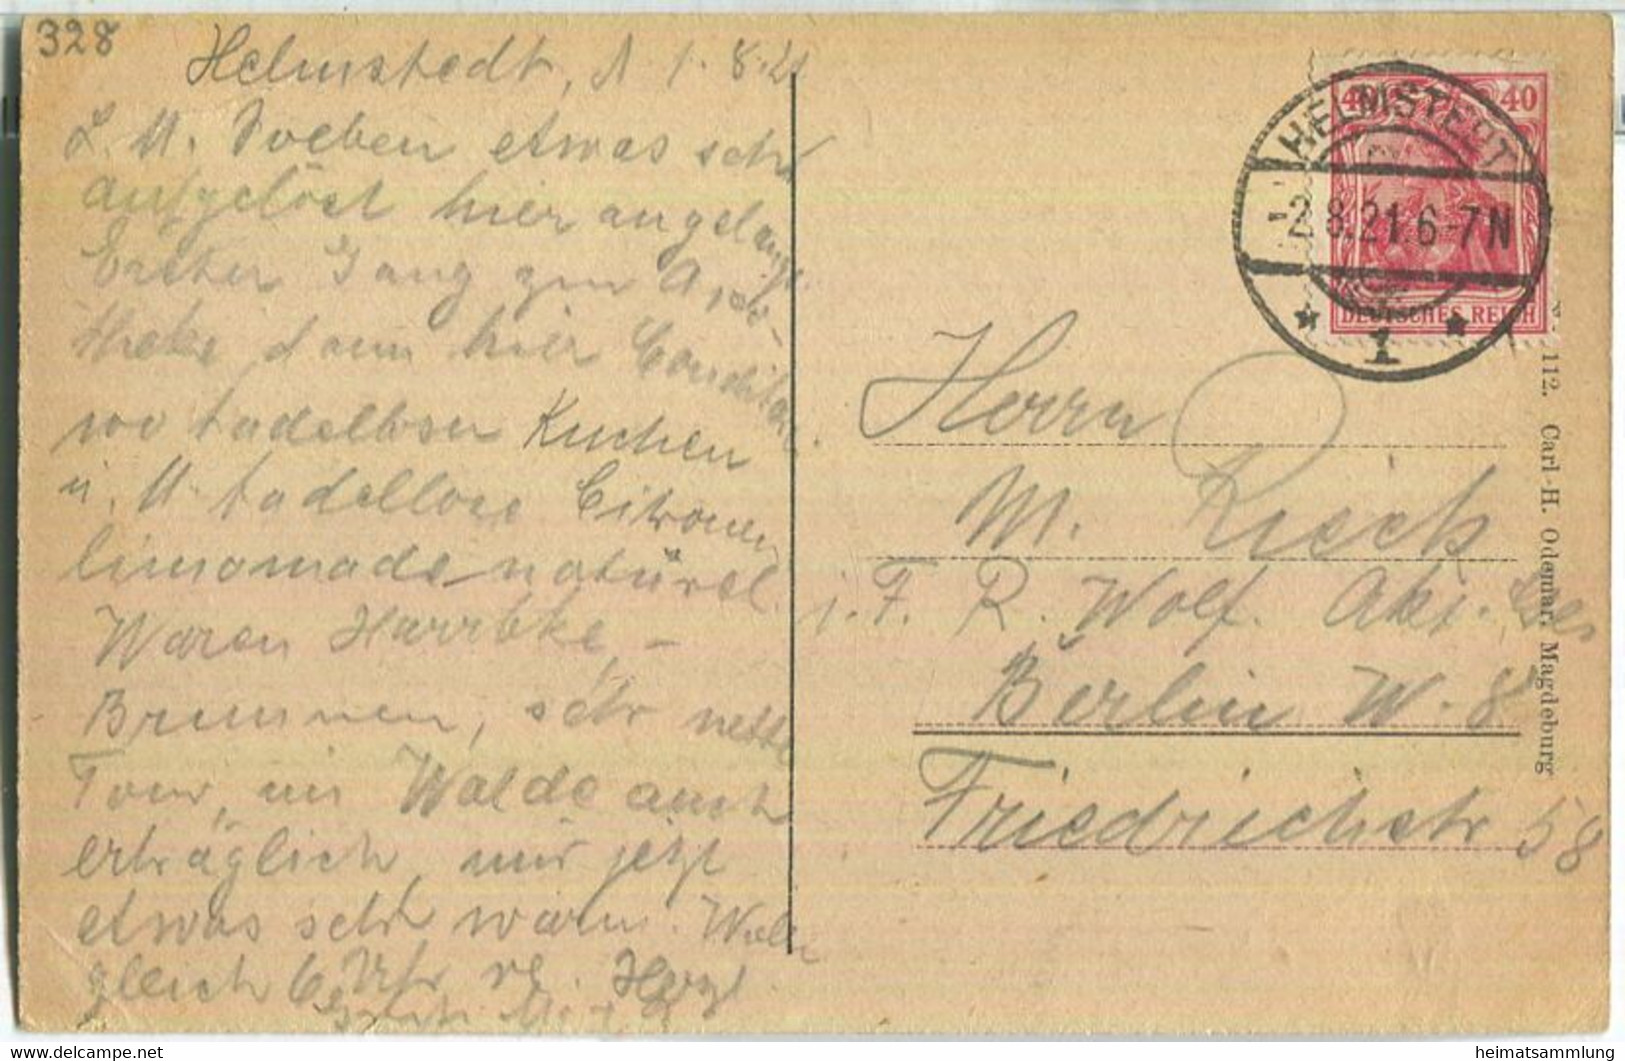 328
Helmstedt, d 1.8.21
L. M. Soeben etwas sehr
aufgelöst hier angelangt.
Erster Gang zur Apo-
theke dann hier Conditorei.
wo tadelloser Kuchen
u. M. tadellose Citronen
limonade naturel.
Waren Harrbke -
Brunnen, sehr nette
Tour, im Walde auch
erträglich, nur jetzt
etwas sehr warm.
gleich 6 Uhr Herzl
HELMSTEDT
-2.8.21.6-7N
* 1 *
40 40
DEUTSCHES REICH
Herrn
M. Rieck
i. F. R. Wolf. Akt. Ges
Berlin W. 8
Friedrichstr 58
112. Carl H. Odemar, Magdeburg
www.delcampe.net
heimatsammlung